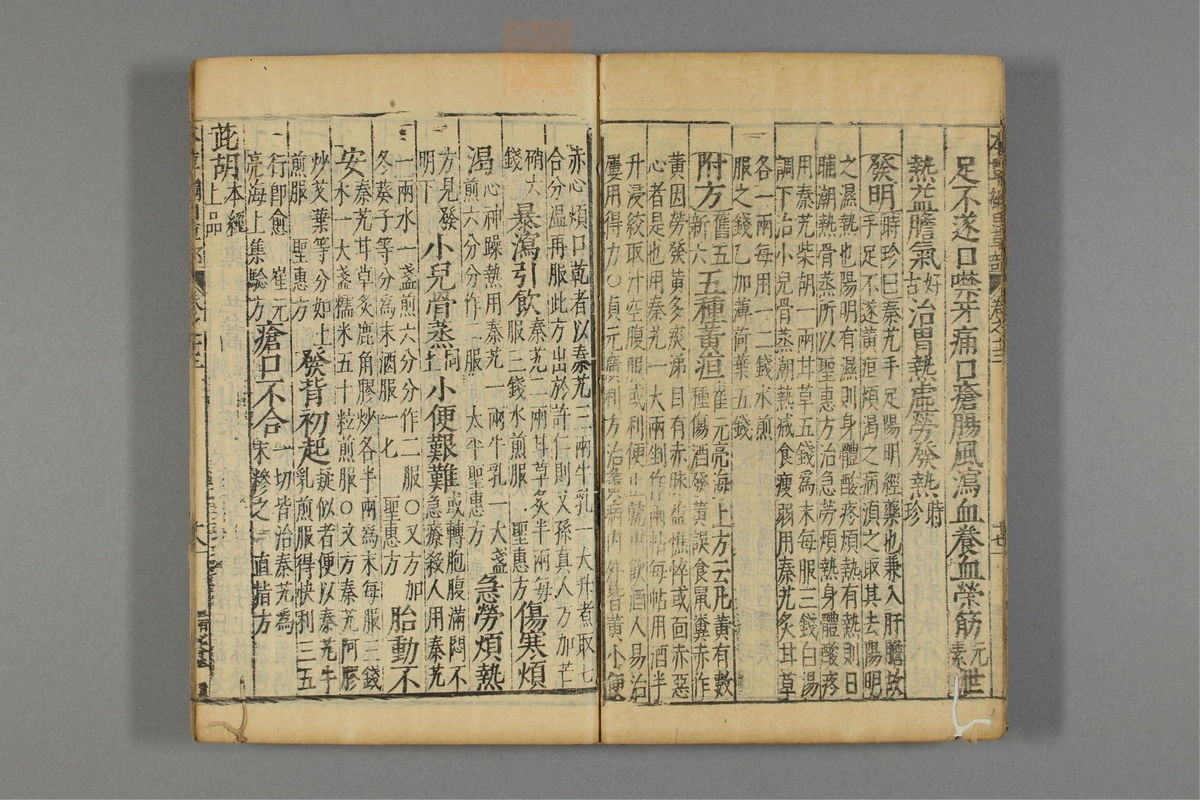 足不遂口噤牙痛口瘡腸風瀉血養血榮筋元素泄
熱益膽氣好古治胃熱虛勞發熱時珍
發明時珍曰秦艽手足陽明經藥也兼入肝膽故
手足不遂黄疸煩渴之病湏之取其去陽明
之濕熱也陽明有濕則身體酸疼煩熱有熱則日
晡潮熱骨蒸所以聖惠方治急勞煩熱身體酸疼
用秦艽柴胡一兩甘草五錢爲末每服三錢白湯
調下治小兒骨蒸潮熱減食瘦弱用秦艽炙甘草
各一兩每用一二錢水煎
服之錢乙加薄荷葉五錢
附方舊五新六五種黄疸崔元亮海上方云凡黄有數
種傷酒發黄誤食鼠糞亦作
黄因勞發黄多痰涕目有赤脉益憔悴或面赤惡
心者是也用秦艽一大兩剉作兩帖每帖用酒半
升浸絞取汁空腹服或利便止就中飲酒人易治
屢用得力○貞元廣利方治黄小便
赤心煩口乾者以秦艽三兩牛乳一大升煮取七
合分温再服此方出於許仁則又孫真人方加芒
硝六錢暴瀉引飲秦艽二兩甘草炙半兩每
服三錢水煎服聖惠方傷寒煩
渴心神躁熱用秦艽一兩牛乳一大盞
煎六分分作二服太平聖惠方急勞煩熱
方見發明下小兒骨蒸同上小便艱難或轉胞腹滿悶不
急療殺人用秦艽
一兩水一盞煎六分分作二服○又方加
冬葵子等分為末酒服一匕聖惠方胎動不
安秦艽甘草炙鹿角膠炒各半兩爲末每服三錢
水一大盞糯米五十粒煎服○又方秦艽阿膠
炒艾葉等分如上煎服聖惠方發背初起疑似者便以秦艽牛
乳煎服得快利三五
行卽愈崔元亮海上集驗方瘡口不合一切皆治秦艽爲
末摻之直指方
茈胡本經上品